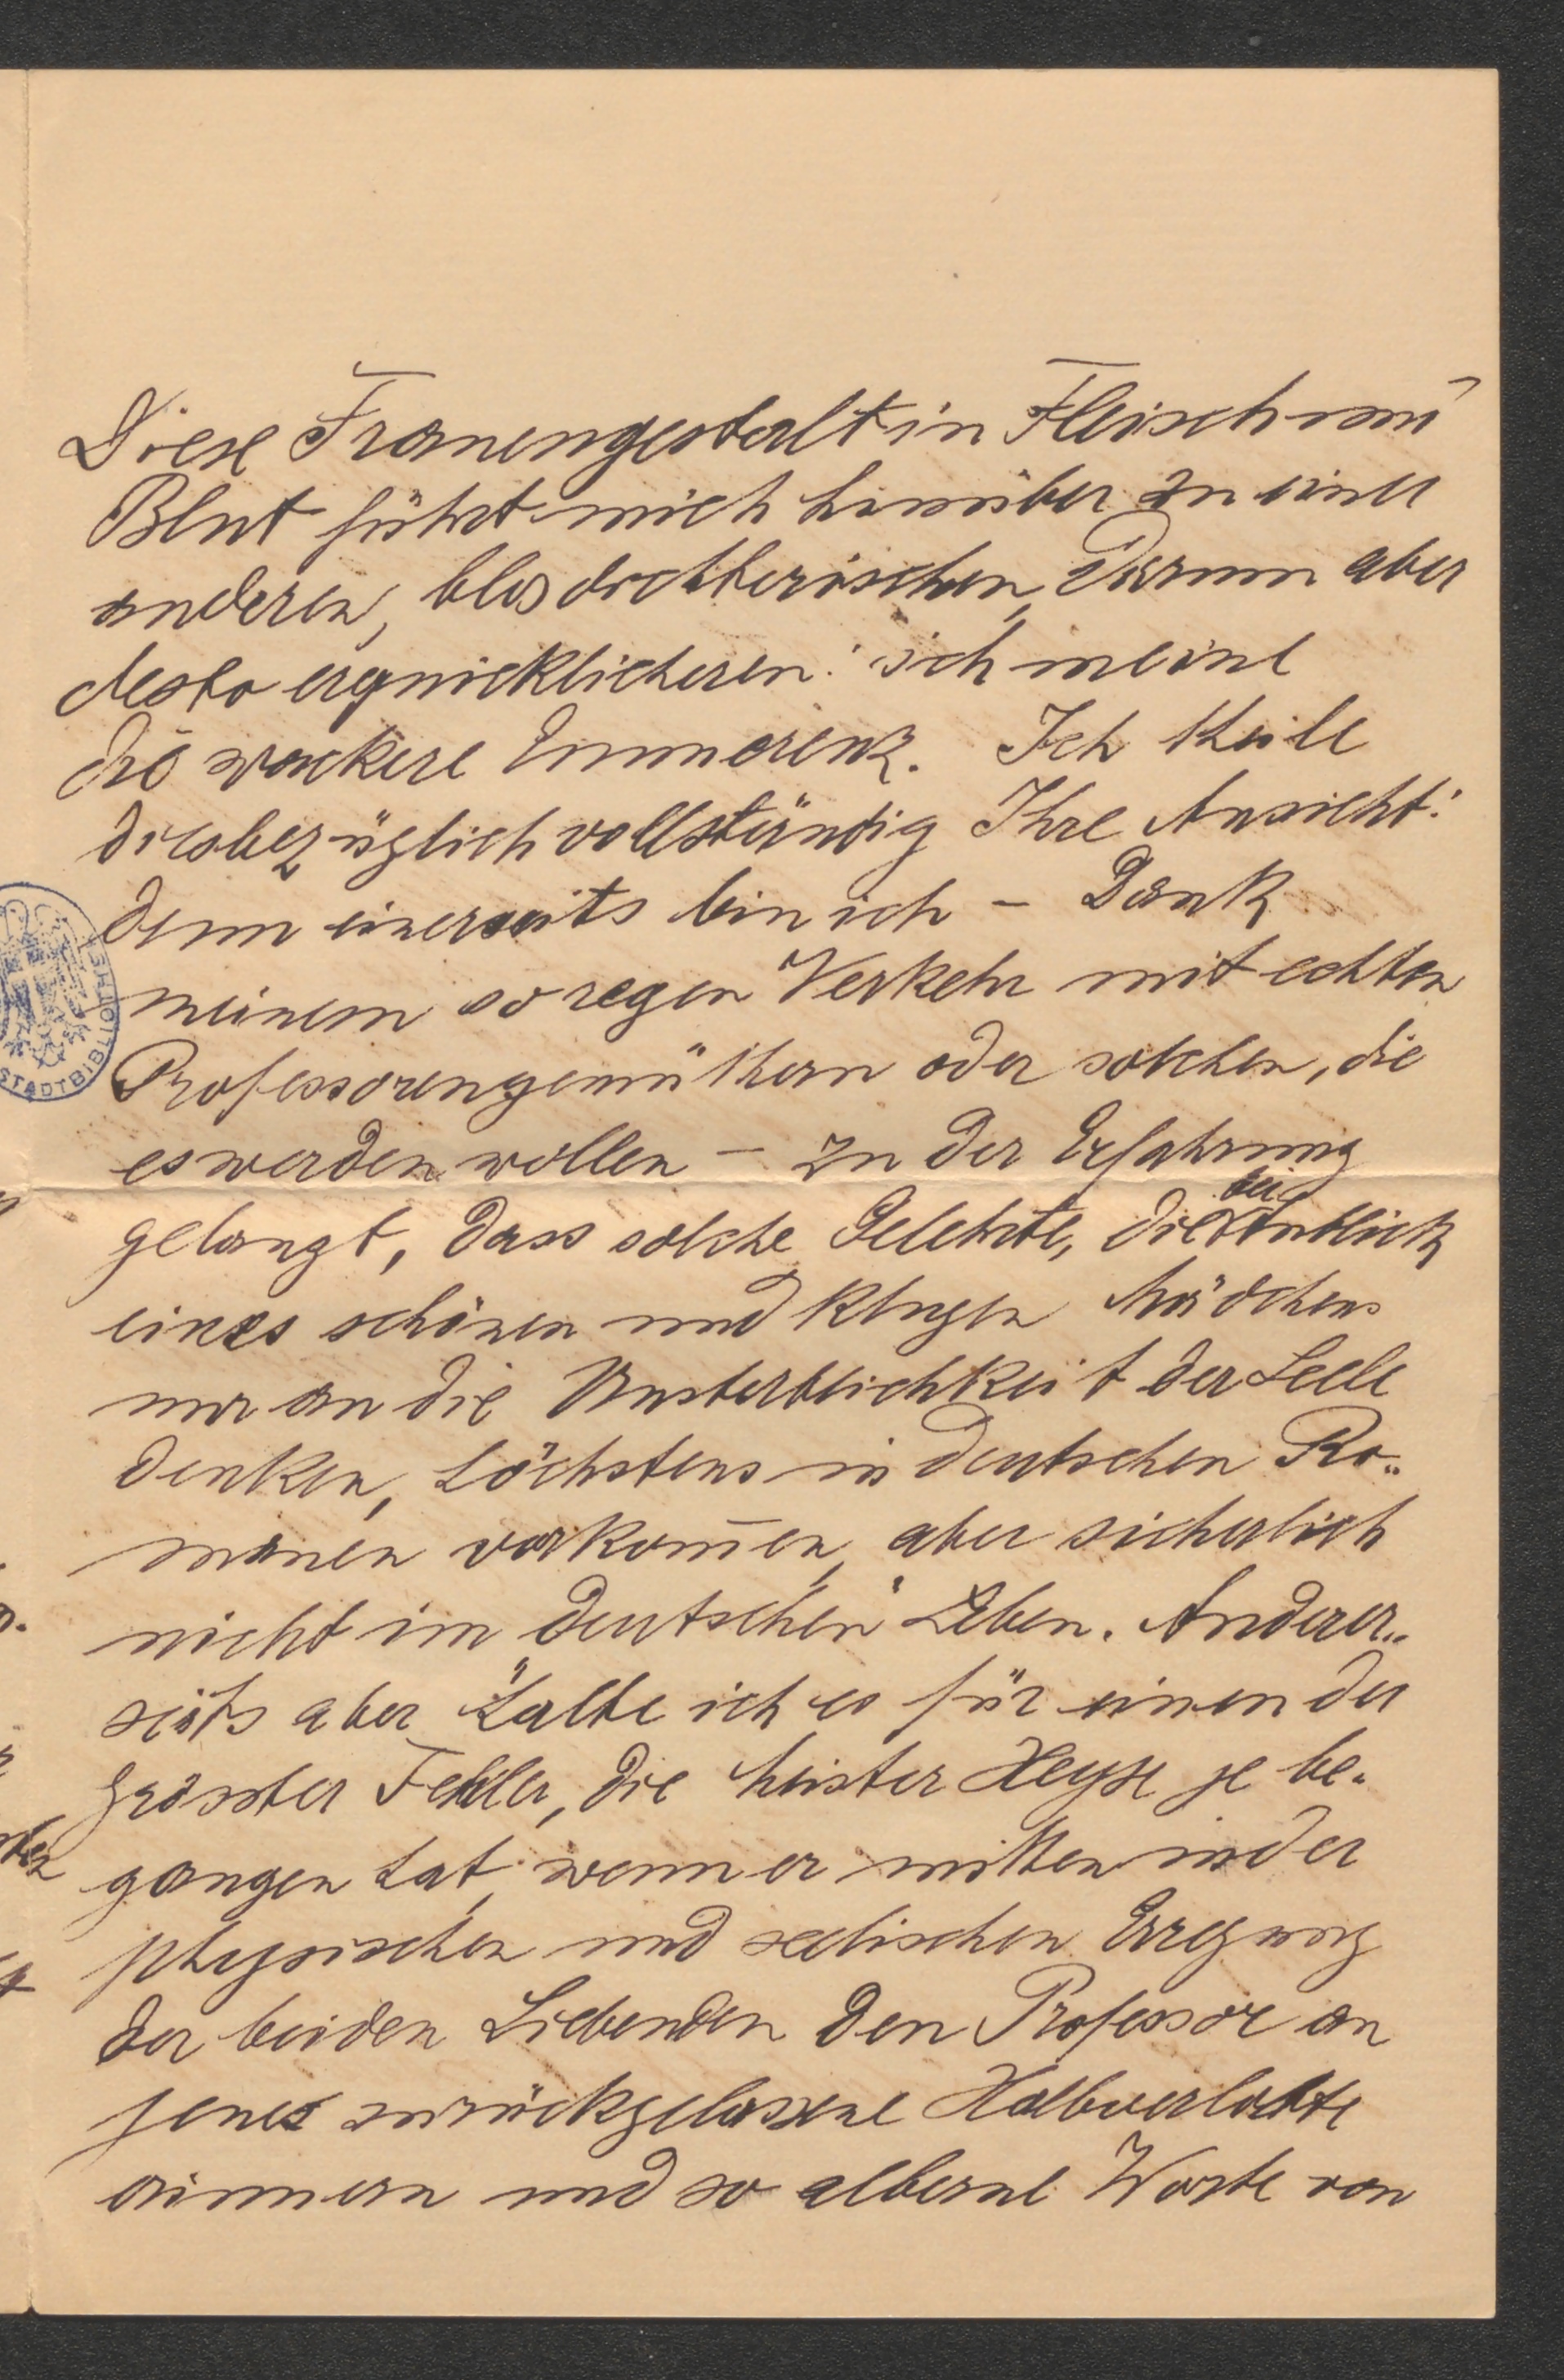 Diese Frauengestalt in Fleisch und
Blut führt mich hinüber zu einer
anderen, blos dichterischen, darum aber
desto erquicklicheren: ich meine
die wackere Emmerenz. Ich theile
diesbezüglich vollständig Ihre Ansicht:
denn einerseits bin ich – Dank
meinem so regen Verkehr mit echten
Professorengemüthern oder solchen, die
es werden wollen – zu der Erfahrung
gelangt, dass solche Gelehrte, die bei Anblick
eines schönen und klugen Mädchens
nur an die Unsterblichkeit der Seele
denken, höchstens in deutschen Ro-
manen vorkom̅en, aber sicherlich
nicht im "deutschen" Leben. Anderer-
seits aber halte ich es für einen der
grössten Fehler, die Meister Heyse je be-
gangen hat, wenn er mitten in der
physischen und seelischen Erregung
der beiden Liebenden den Professor an
jene zurückgelassene Halbverlobte
erinnern und so alberne Worte von
STADTBIBLIOTHEK